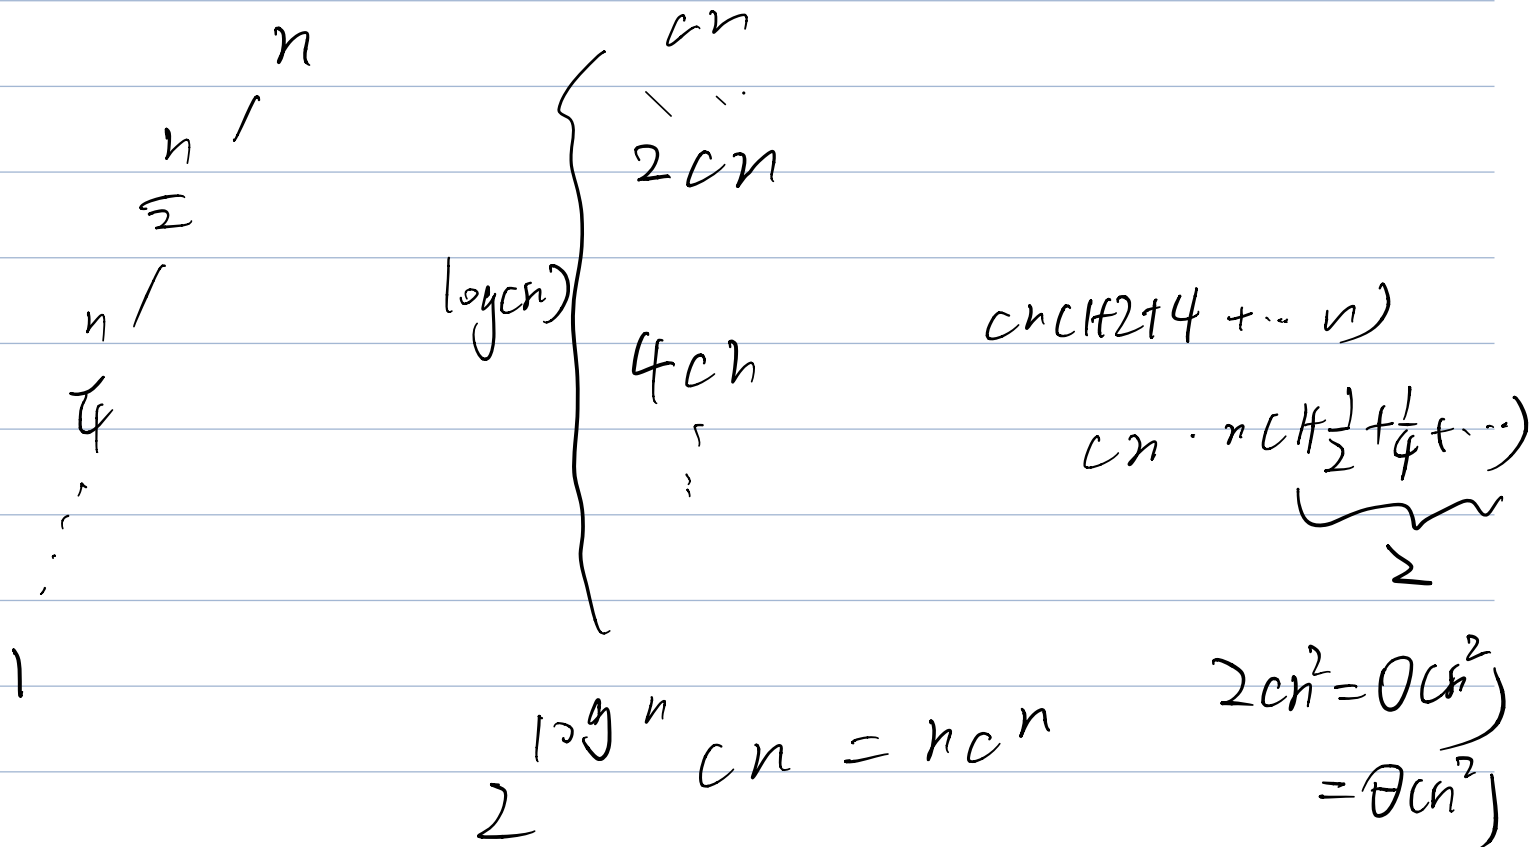 n
n/2
n/4
⋮
1
log(n)
cn
2cn
4cn
⋮
2^{log n} cn = nc^n
cn(1+2+4 + ... n)
cn · n (1+1/2+1/4+...)
2
2cn^2 = O(n^2)
= θ(n^2)